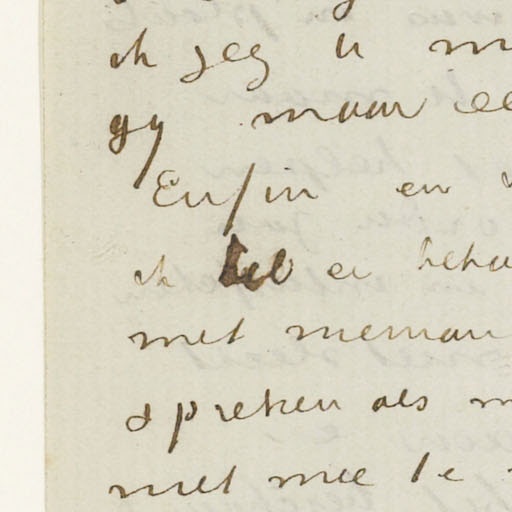 ik zeg u m
gy maar ee
Enfin en
ik heb er beho
met meman
spreken als m
met mee te